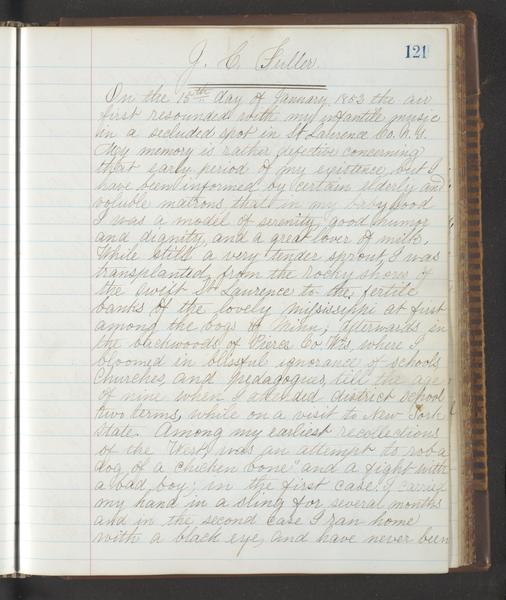 121
J. C. Fuller.
On the 15th day of January 1853 the air
first resounded with my infantile music
in a secluded spot in St Lawrence Co. N.Y.
My memory is rather defective concerning
that early period of my existence, but I
have been informed by certain elderly and
voluble matrons that in my babyhood
I was a model of serenity, good humor
and dignity, and a great lover of milk.
While still a very tender sprout, I was
transplanted from the rocky shores of
the swift St Lawrence to the fertile
banks of the lovely Mississippi at first
among the bogs of Minn; afterwards in
the backwoods of Pierce Co Wis, where I
bloomed in blissful ignorance of schools
churches and pedagogues, till the age
of nine when I attended district school
two terms, while on a visit to New York
state. Among my earliest recollections
of the West, was an attempt to rob a
dog of a chicken bone and a fight with
a bad boy; in the first case I carried
my hand in a sling for several months
and in the second case I ran home
with a black eye, and have never been